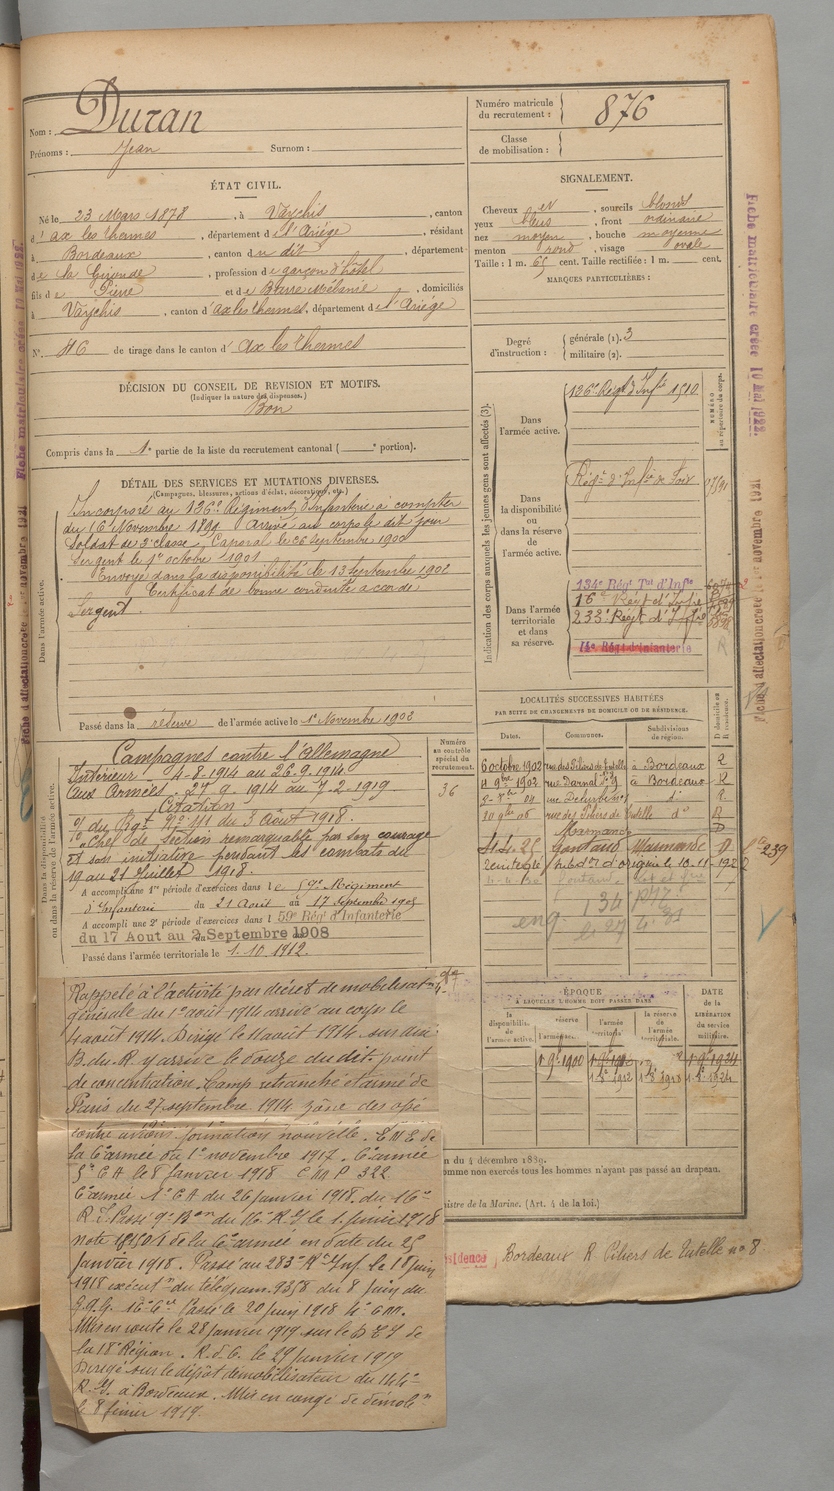 Nom : Duran
Prénoms : Jean Surnom :
Numéro matricule du recrutement : 876
Classe de mobilisation :
ÉTAT CIVIL.
Né le 23 Mars 1878, à Vaychis, canton
d'ax les thermes, département de l'Ariège, résidant
à Bordeaux, canton du dit, département
de la Gironde, profession de garçon d'hôtel
fils de Pierre et de Barre Mélanie, domiciliés
à Vaychis, canton d'ax les thermes, département de l'Ariège
N° 46 de tirage dans le canton d'Ax les thermes
SIGNALEMENT.
Cheveux et, sourcils blonds
yeux bleus, front ordinaire
nez moyen, bouche moyenne
menton rond, visage ovale
Taille : 1 m. 65 cent. Taille rectifiée : 1 m. cent.
MARQUES PARTICULIÈRES :
Degré d'instruction : générale (1). 3
militaire (2).
DÉCISION DU CONSEIL DE REVISION ET MOTIFS.
(Indiquer la nature des dispenses.)
Bon
Compris dans la 1e partie de la liste du recrutement cantonal ( e portion).
DÉTAIL DES SERVICES ET MUTATIONS DIVERSES.
(Campagnes, blessures, actions d'éclat, décorations, etc.)
Dans l'armée active.
Incorporé au 126e Régiment d'Infanterie à compter
du 16 Novembre 1899. Arrivé au corps le dit jour
Soldat de 2e classe. Caporal le 26 Septembre 1900
Sergent le 1er octobre 1901
Envoyé dans la disponibilité le 13 Septembre 1902
Certificat de bonne conduite accordé
Sergent.
Passé dans la réserve de l'armée active le 1er Novembre 1902
Dans la disponibilité ou dans la réserve de l'armée active.
Campagnes contre l'Allemagne
Intérieur 4-8-1914 au 26-9-1914
Aux Armées 27-9-1914 au 7-2-1919
Citation
du Rgt N° 111 du 3 Août 1918.
"Chef de Section remarquable par son courage
et son initiative pendant les combats du
19 au 21 Juillet 1918.
A accompli une 1re période d'exercices dans le 59e Régiment
d'Infanterie du 21 Août au 17 Septembre 1905
A accompli une 2e période d'exercices dans l 59e Régt d'Infanterie
du 17 Aout au 2 Septembre 1908
Passé dans l'armée territoriale le 1.10.1912.
Numéro au contrôle spécial du recrutement.
36
Indication des corps auxquels les jeunes gens sont affectés (3).
NUMÉRO au répertoire du corps.
Dans l'armée active.
126e Régt d'Infie 1510
Dans la disponibilité ou dans la réserve de l'armée active.
Régt d'Infie de
Dans l'armée territoriale et dans sa réserve.
134e Régt Tal d'Infie
16e Régt d'Infie
233e Régt d'Infie
Régt d'Infanterie
LOCALITÉS SUCCESSIVES HABITÉES
PAR SUITE DE CHANGEMENTS DE DOMICILE OU DE RÉSIDENCE.
Dates. Communes. Subdivisions de région. D domicile ou R résidence.
6 octobre 1902 à Bordeaux R
4 9bre 1902 rue Darnal à Bordeaux R
10 9bre 06 do R
Marmande D
Gontaud Marmande D
239
eng. 134
ÉPOQUE
A LAQUELLE L'HOMME DOIT PASSER DANS
la disponibilité de l'armée active. la réserve de l'armée active. l'armée territoriale. la réserve de l'armée territoriale.
DATE de la LIBÉRATION du service militaire.
1er 9bre 1900
1912 1918 1924
n du 4 décembre 1889.
omme non exercés tous les hommes n'ayant pas passé au drapeau.
nistre de la Marine. (Art. 4 de la loi.)
sidence Bordeaux R. n° 8
Rappelé à l'activité par décret de mobilisation
générale du 1er août 1914 arrivé au corps le
4 août 1914. Dirigé le 11 août 1914 sur une
B. du R. y arrive le douze du dit. point
de concentration. Camp retranché et armé de
Paris du 27 septembre 1914 zône des opé
contre avions formation nouvelle. E M E de
la 6e armée du 1er novembre 1917. 6e armée
5e C A le 8 Janvier 1918 C M P 322.
6e armée 1er C A du 26 janvier 1918 du 16e
R.I. Passé 9e Bon du 16e R I le 1 février 1918
note de la 6e armée en date du 25
Janvier 1918. Passé au 283e Rt Inf. le 18 juin
1918 exécution du télégram. 9358 du 8 juin du
G.Q.G. 16e Cie Passé le 20 juin 1918
Mis en route le 28 janvier 1919 sur le
la 18e Région. R.d.C. le 29 Janvier 1919
Dirigé sur le dépôt démobilisateur du 144e
R.I. à Bordeaux. Mis en congé de démobon
le 8 février 1919.
Fiche matriculaire créée 10 Mai 1922.
Fiche d'affectation créée 1er novembre 1921